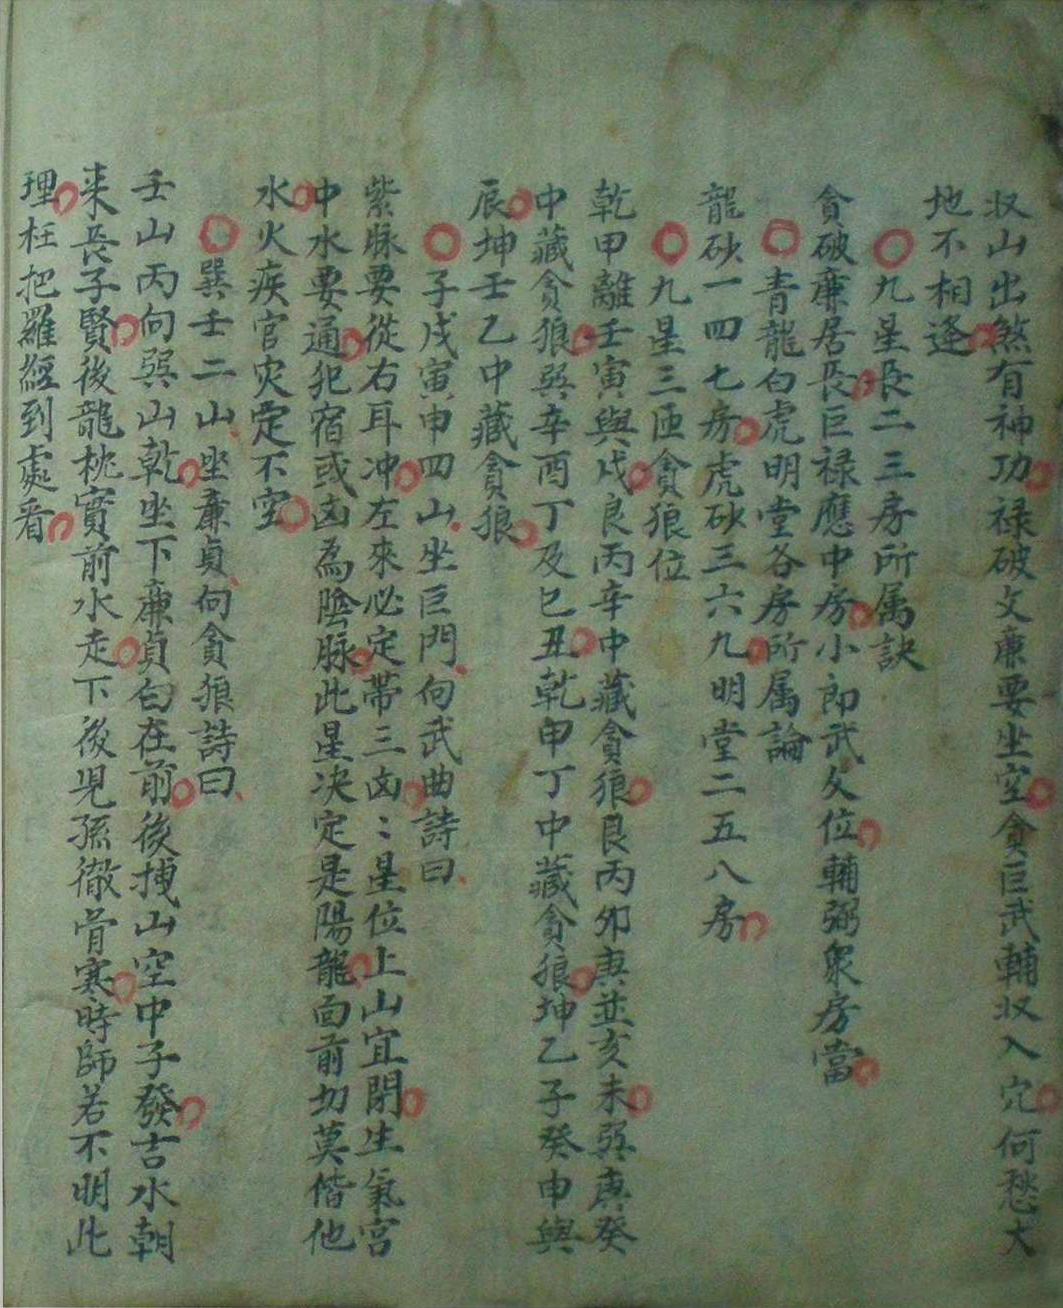 収山出煞有神功禄破文廉要坐空貪巨武輔収入穴何愁大
地不相逢
九星長二三房所属訣
貪破廉居長巨禄應中房小郎武文位輔弼衆房當
青龍白虎明堂各房所属論
龍砂一四七房虎砂三六九明堂二五八房
九星三匝貪狼位
乾甲離壬寅與戌艮丙辛中藏貪狼艮丙卯庚並亥未巽庚癸
中藏貪狼巽辛酉丁及巳丑乾申丁中藏貪狼坤乙子癸申與
辰坤壬乙中藏貪狼
子戌寅申四山坐巨門向武曲詩曰
紫脉要從右耳冲左來必定帯三凶〻星位上山宜閉生氣宮
中水要通犯宿或凶為陰脉此星决定是陽龍面前切莫偕他
水火疾官灾定不空
巽壬二山坐廉貞向貪狼詩曰
壬山丙向巽山乾坐下廉貞向在前後拽山空中子發吉水朝
来長子賢後龍枕實前水走下後児孫徹骨寒時師若不明此
理枉把羅經到處看